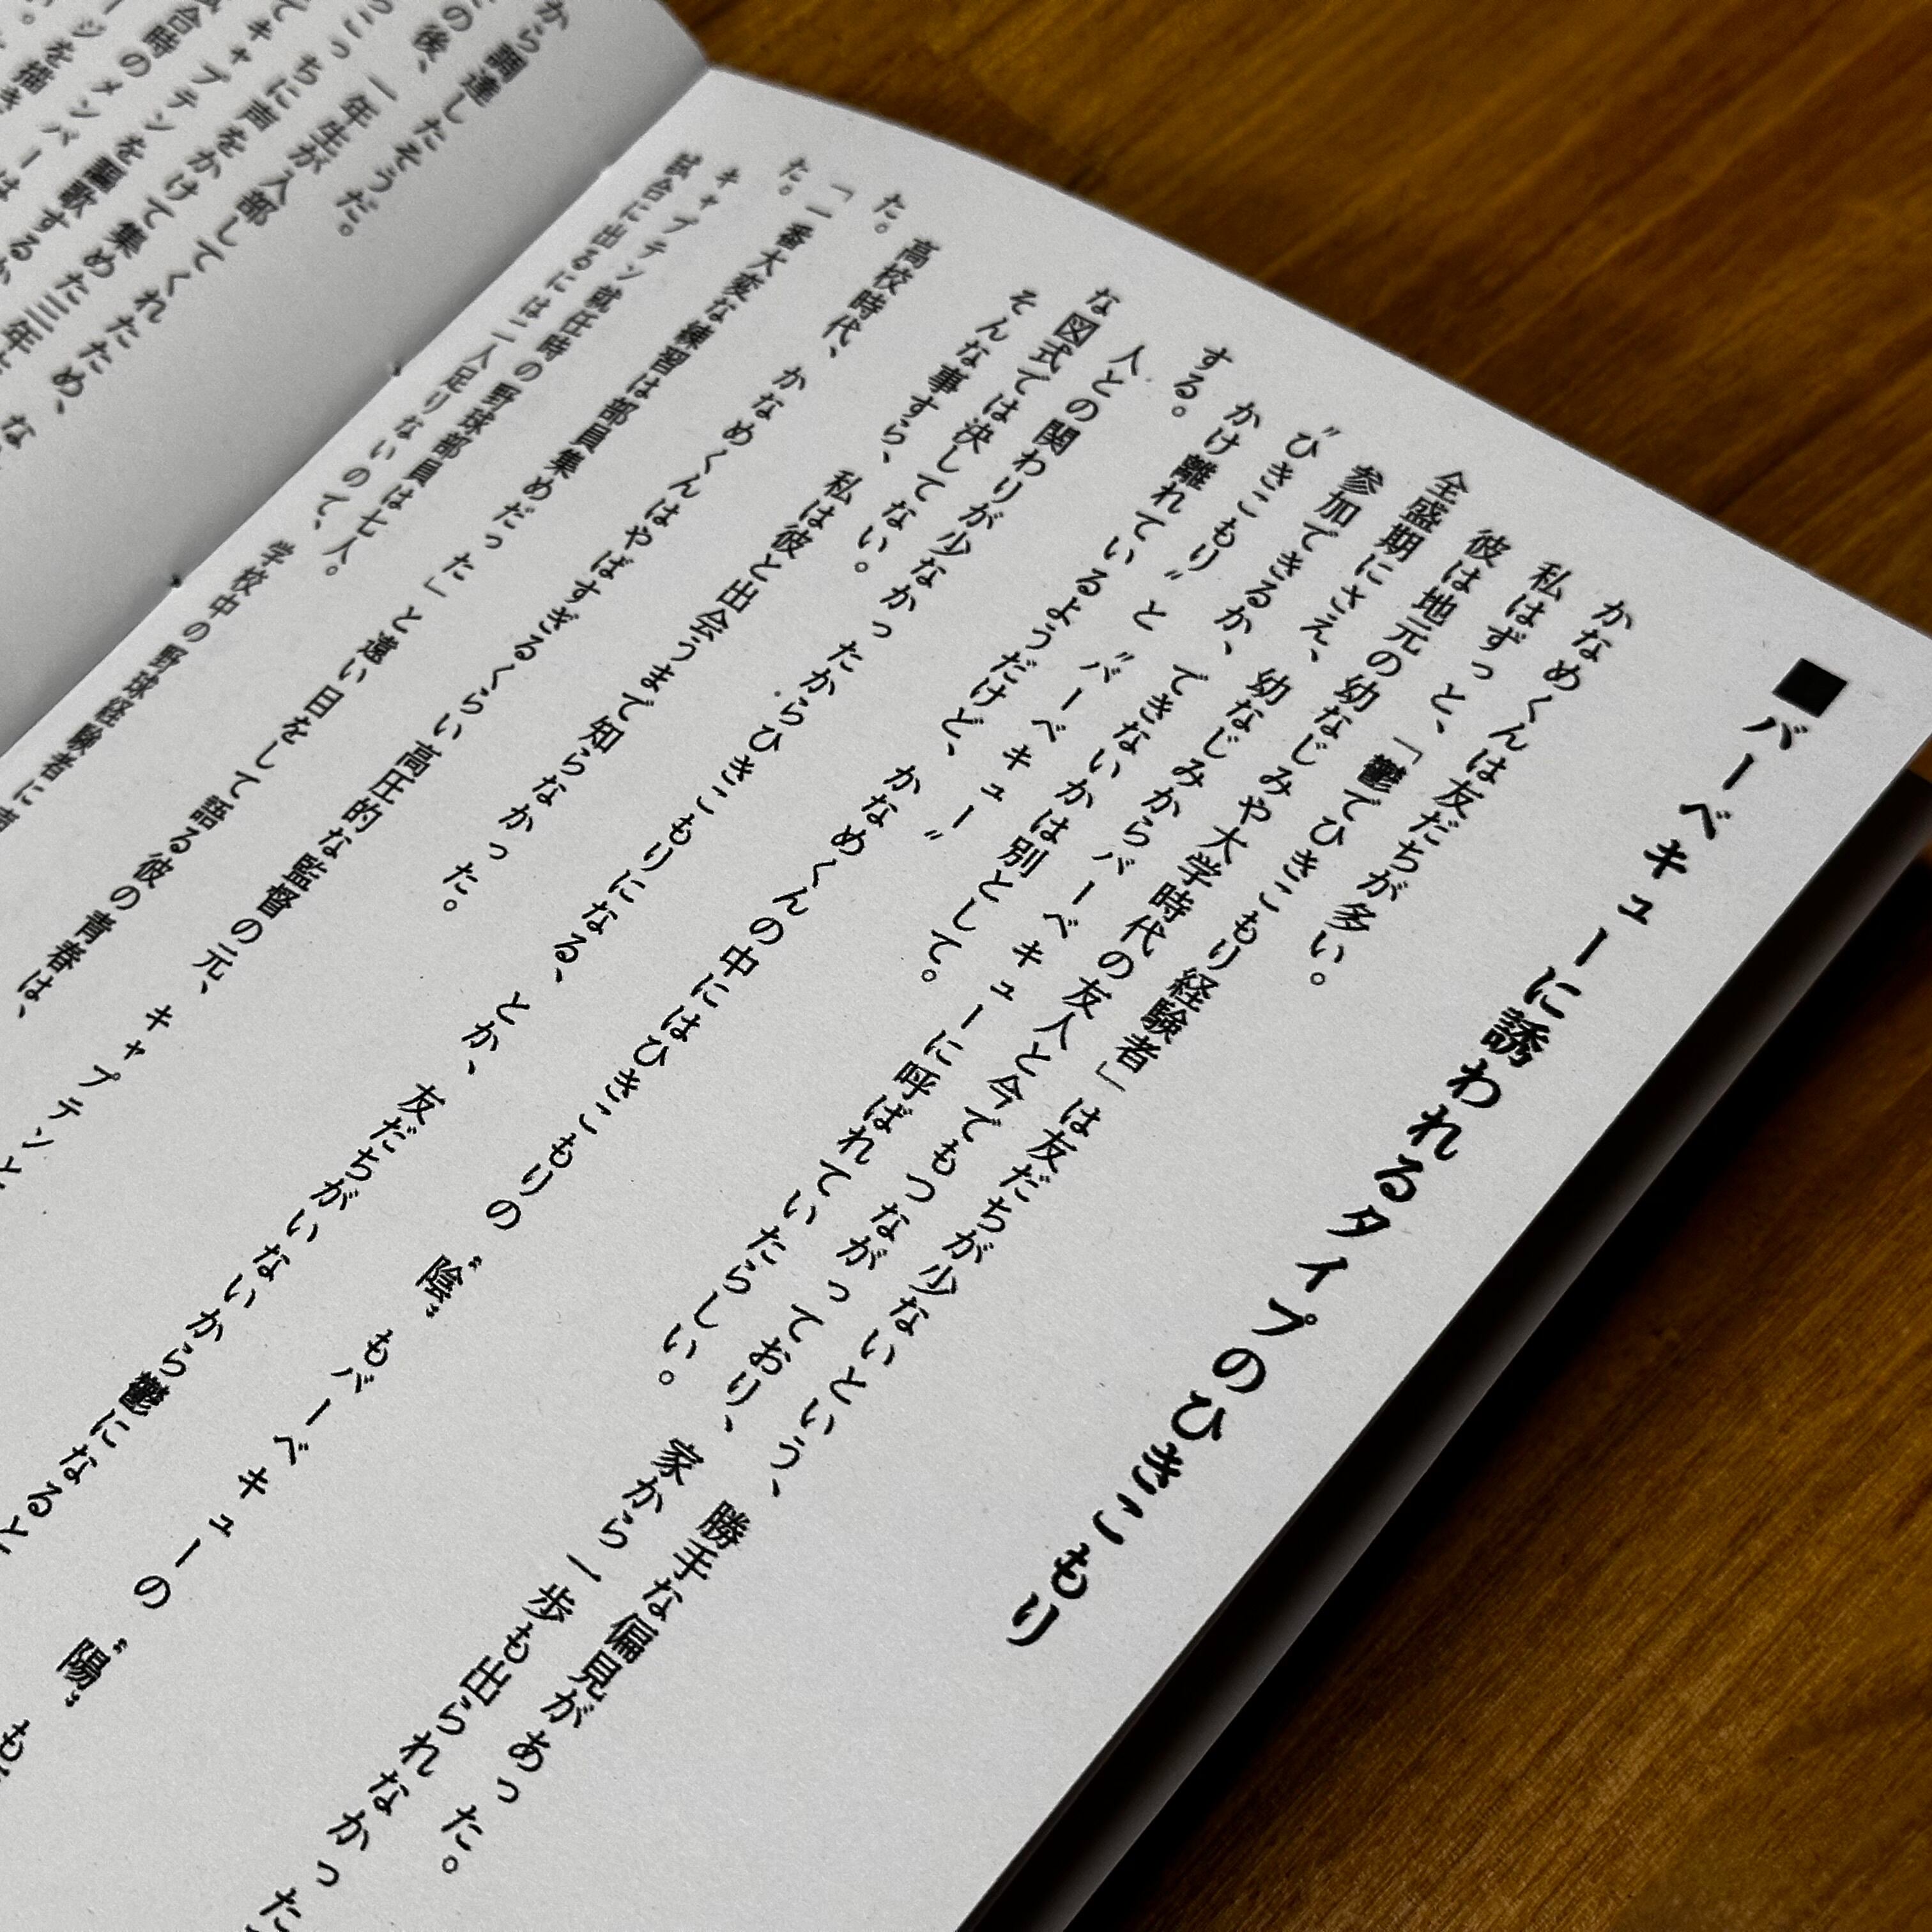 ■バーベキューに誘われるタイプのひきこもり
かなめくんは友だちが多い。
私はずっと、「鬱でひきこもり経験者」は友だちが少ないという、勝手な偏見があった。
彼は地元の幼なじみや大学時代の友人と今でもつながっており、家から一歩も出られなかった
全盛期にさえ、幼なじみからバーベキューに呼ばれていたらしい。
参加できるか、できないかは別として。
〝ひきこもり〟と〝バーベキュー〟
かけ離れているようだけど、かなめくんの中にはひきこもりの〝陰〟もバーベキューの〝陽〟も
する。
人との関わりが少なかったからひきこもりになる、とか、友だちがいないから鬱になると
な図式では決してない。
そんな事すら、私は彼と出会うまで知らなかった。
高校時代、かなめくんはやばすぎるくらい高圧的な監督の元、キャプテンと
た。
「一番大変な練習は部員集めだった」と遠い目をして語る彼の青春は、
た。
キャプテン就任時の野球部員は七人。
試合に出るには二人足りないので、学校中の野球経験者に
から調達したそうだ。
の後、一年生が入部してくれたため、な
ちに声をかけて集めた三年
キャプテンを謳歌する
合時のメンバーは
ジを描き